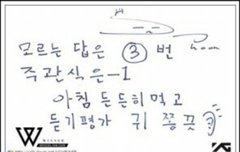 모르는 답은 ③ 번
주관식은 -1
아침 든든히 먹고
듣기평가 귀 쫑끗
WINNER
YG